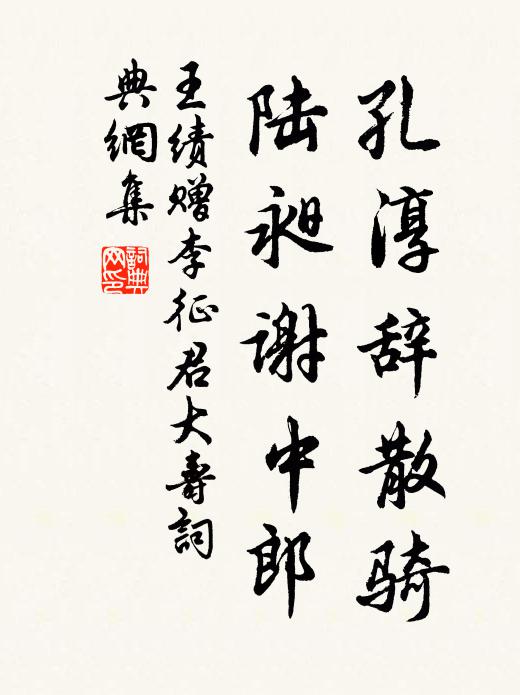 孔淳辞散骑
陆昶谢中郎
王绩赠李征君大寿詞
典網集
詞典网印